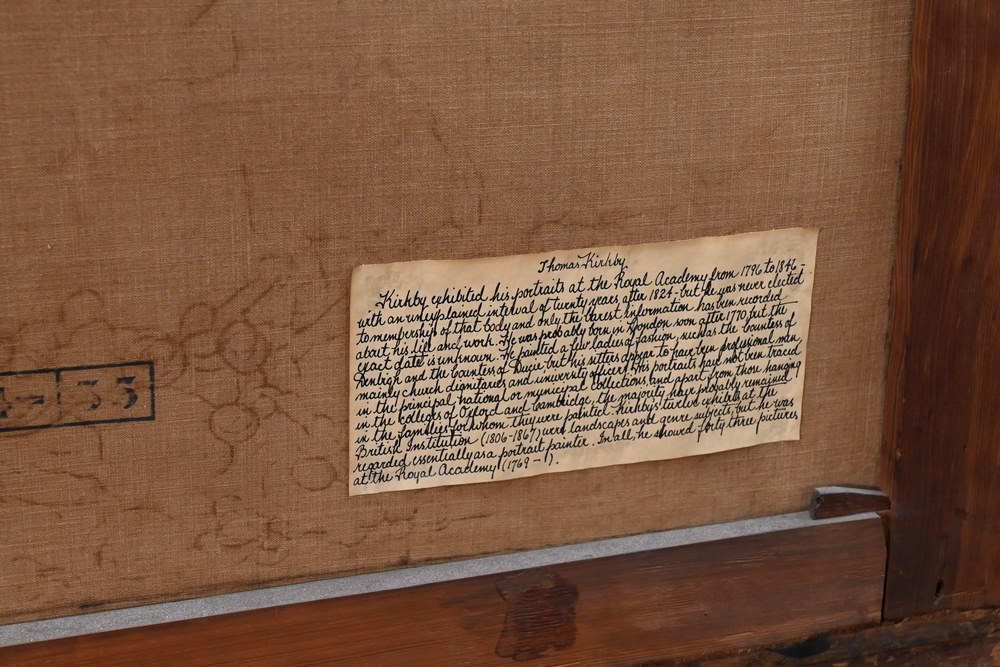 Thomas Kirkby
Kirkby exhibited his portraits at the Royal Academy from 1796 to 1846 -
with an unexplained interval of twenty years after 1824 - but he was never elected
to membership of that body and only the barest information has been recorded
about his life and work. He was probably born in London soon after 1770 but the
exact date is unknown. He painted a few ladies of fashion, such as the Countess of
Denbigh and the Countess of Ducie but his sitters appear to have been professional men,
mainly church dignitaries and university officers. His portraits have not been traced
in the principal national or municipal collections and apart from those hanging
in the colleges of Oxford and Cambridge, the majority have probably remained
in the families for whom they were painted. Kirkby's twelve exhibits at the
British Institution (1806-1867) were landscapes and genre subjects, but he was
regarded essentially as a portrait painter. In all, he showed forty three pictures
at the Royal Academy (1769 - ).
33